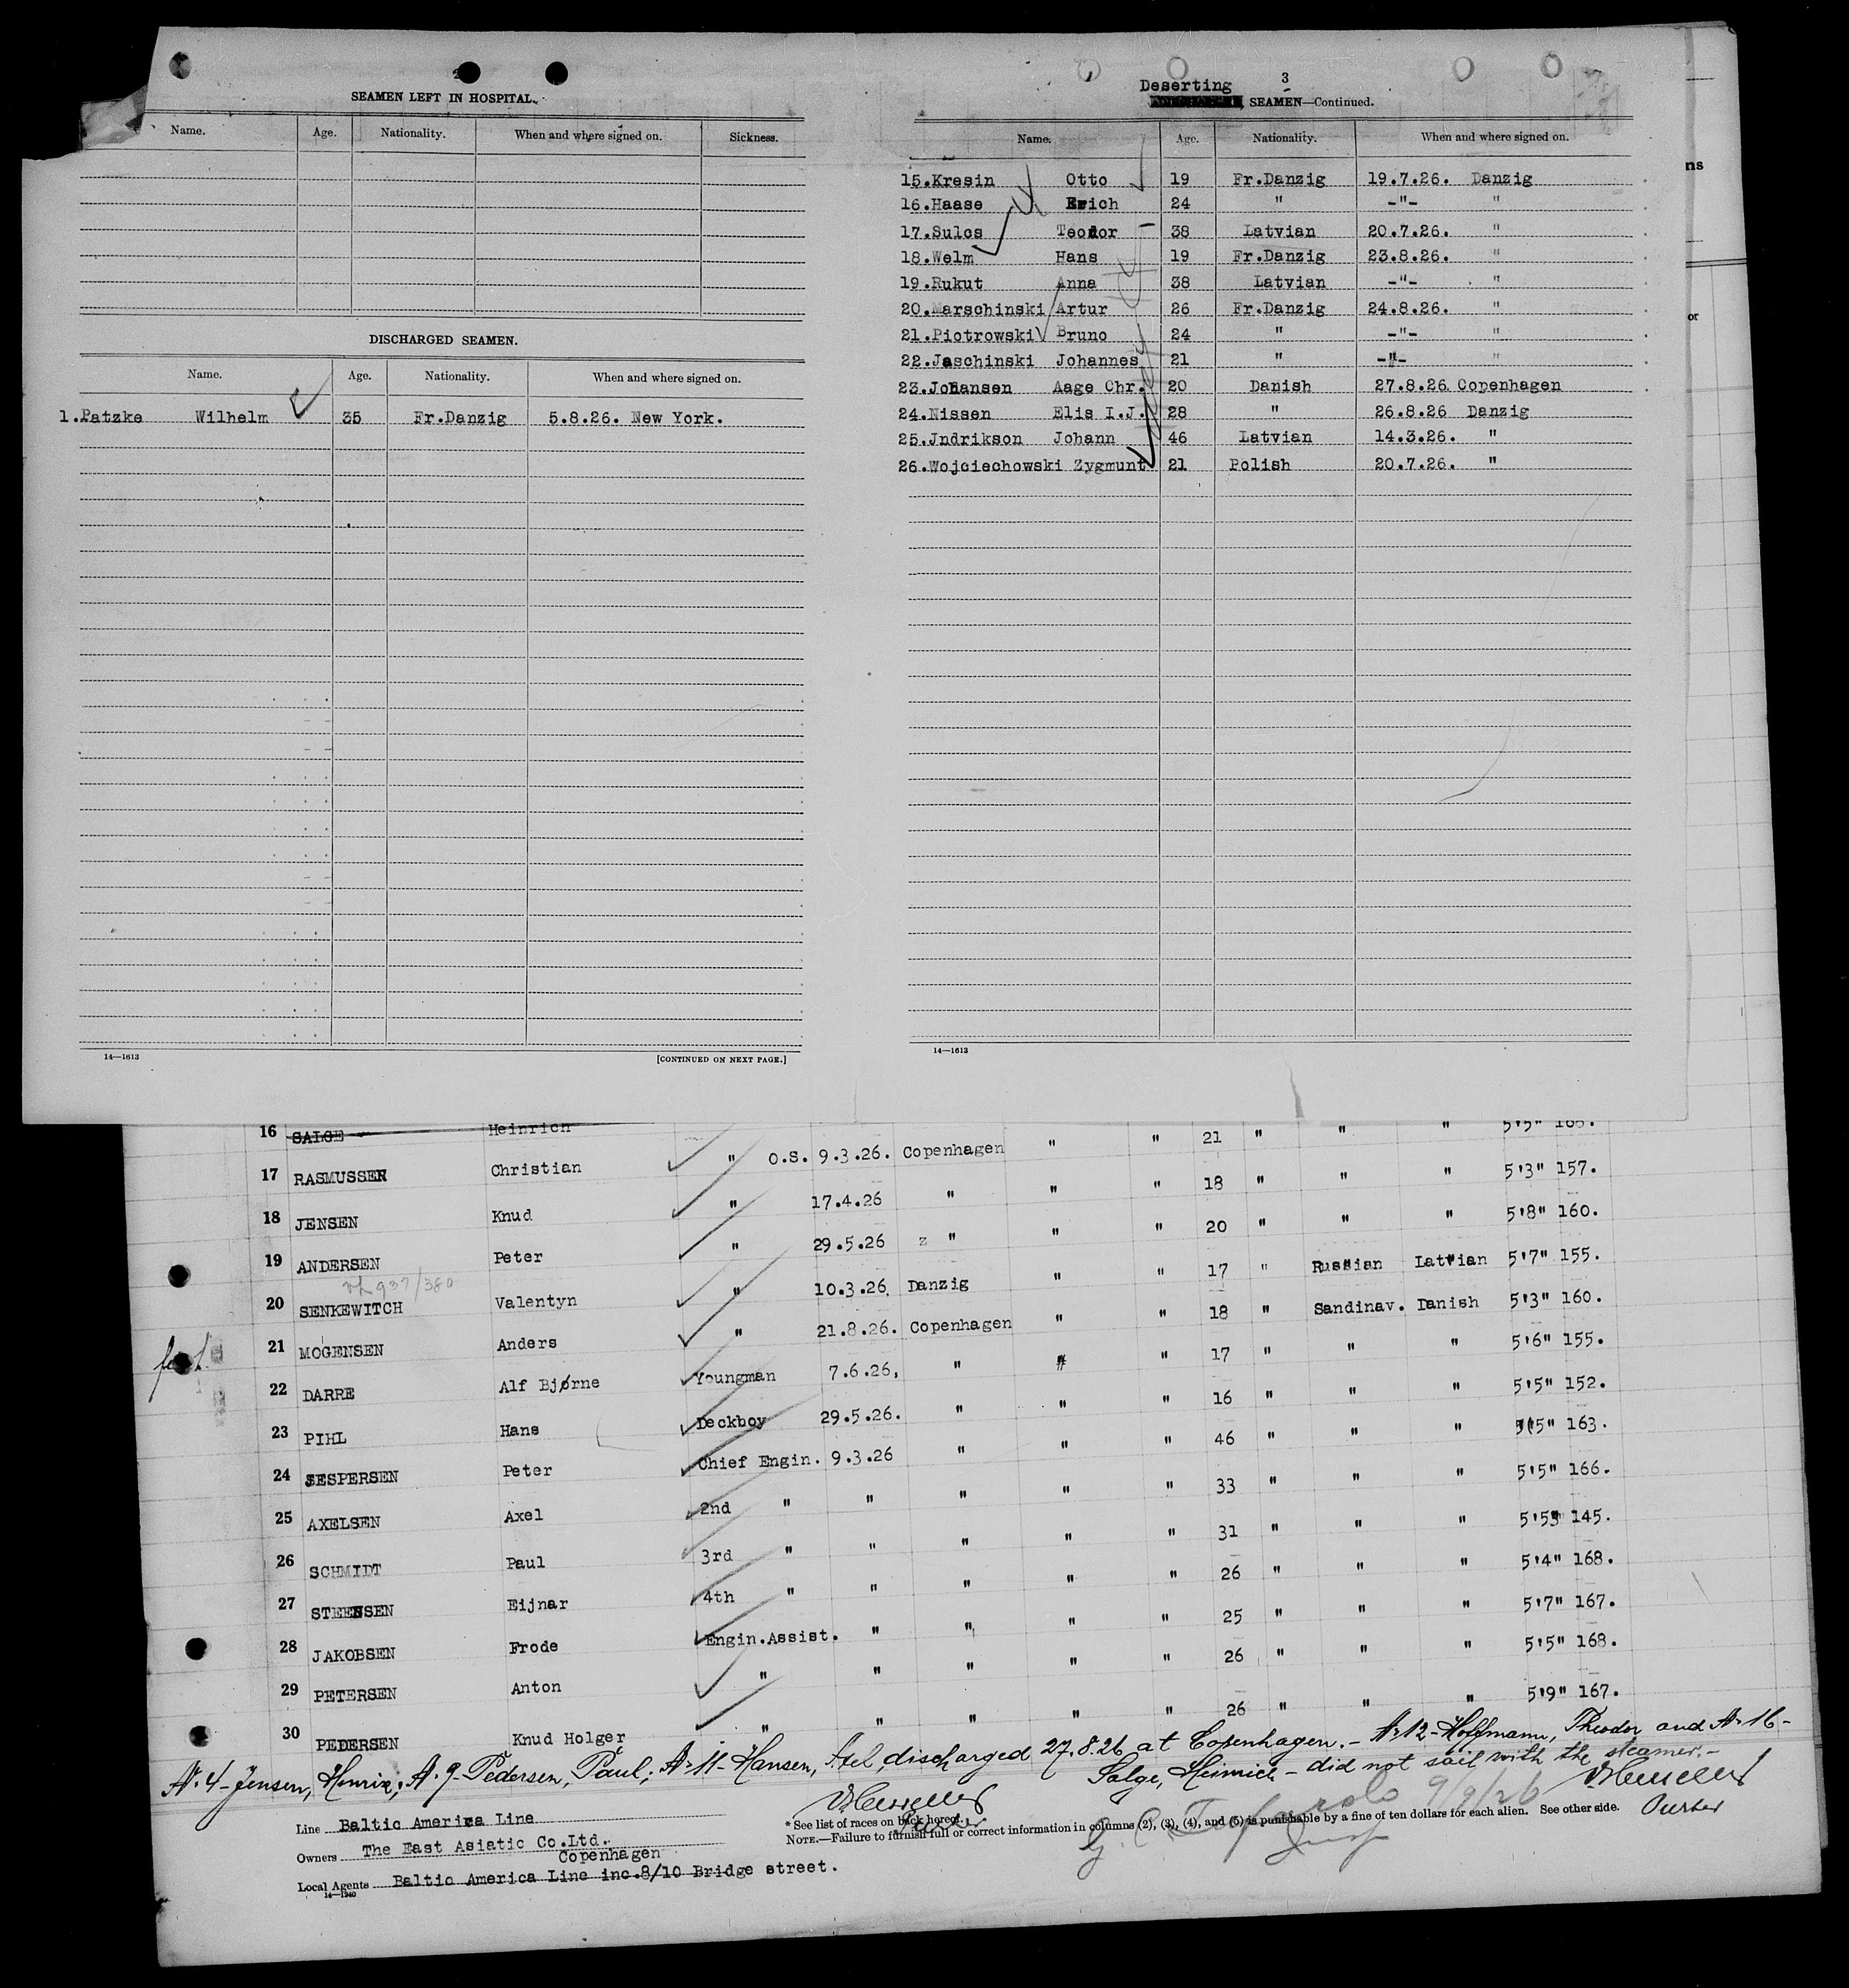 2
SEAMEN LEFT IN HOSPITAL.
Name. Age. Nationality. When and where signed on. Sickness.
DISCHARGED SEAMEN.
Name. Age. Nationality. When and where signed on.
1.Patzke Wilhelm 35 Fr.Danzig 5.8.26. New York.
14—1613 [CONTINUED ON NEXT PAGE.]
3
Deserting
SEAMEN—Continued.
Name. Age. Nationality. When and where signed on.
15.Kresin Otto 19 Fr.Danzig 19.7.26. Danzig
16.Haase Erich 24 " -"- "
17.Sulcs Teodor 38 Latvian 20.7.26. "
18.Welm Hans 19 Fr.Danzig 23.8.26. "
19.Rukut Anna 38 Latvian -"- "
20.Marschinski Artur 26 Fr.Danzig 24.8.26. "
21.Piotrowski Bruno 24 " -"- "
22.Jaschinski Johannes 21 " -"- "
23.Johansen Aage Chr. 20 Danish 27.8.26 Copenhagen
24.Nissen Elis I.J. 28 " 26.8.26 Danzig
25.Jndrikson Johann 46 Latvian 14.3.26. "
26.Wojciechowski Zygmunt 21 Polish 20.7.26. "
14—1613
ns
or
16 SALGE Heinrich " O.S. 9.3.26. Copenhagen " " 21 " " " 5'5" 165.
17 RASMUSSEN Christian " 17.4.26 " " " 18 " " " 5'3" 157.
18 JENSEN Knud " 29.5.26 z " " " 20 " " " 5'8" 160.
19 ANDERSEN Peter " 10.3.26. Danzig " " 17 " Russian Latvian 5'7" 155.
937/380
20 SENKEWITCH Valentyn " 21.8.26. Copenhagen " " 18 " Sandinav. Danish 5'3" 160.
21 MOGENSEN Anders Youngman 7.6.26, " " " 17 " " " 5'6" 155.
22 DARRE Alf Bjørne Deckboy 29.5.26. " " " 16 " " " 5'5" 152.
23 PIHL Hans Chief Engin. 9.3.26 " " " 46 " " " 5'5" 163.
24 JESPERSEN Peter 2nd " " " " " 33 " " " 5'5" 166.
25 AXELSEN Axel 3rd " " " " " 31 " " " 5'5" 145.
26 SCHMIDT Paul 4th " " " " " 26 " " " 5'4" 168.
27 STEENSEN Eijnar Engin.Assist. " " " " 25 " " " 5'7" 167.
28 JAKOBSEN Frode " " " " " 26 " " " 5'5" 168.
29 PETERSEN Anton " " " " " 26 " " " 5'9" 167.
30 PEDERSEN Knud Holger
Nr 4 - Jensen, Henrix; Nr 9 - Pedersen, Paul; Nr 11 - Hansen, Axel, discharged 27.8.26 at Copenhagen. - Nr 12 - Hoffmann, Theodor and Nr 16 -
Salge, Heinrich - did not sail with the steamer. -
Purser
9/9/26
Purser
Line Baltic America Line
* See list of races on back hereof.
NOTE.—Failure to furnish full or correct information in columns (2), (3), (4), and (5) is punishable by a fine of ten dollars for each alien. See other side.
Owners The East Asiatic Co.Ltd.
Copenhagen
Local Agents Baltic America Line inc.8/10 Bridge street.
14—1240